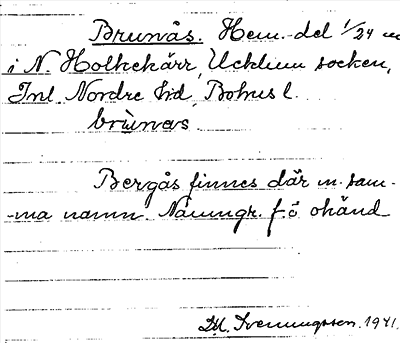 Brunås. Hem.-del 1/24 m
i N. Holkekärr, Ucklum socken,
Inl. Nordre hd, Bohusl.
brùnas
Bergås finnes där m. sam-
-ma namn. Namngr. f.ö okänd
D.H. Svenungsson. 1941.